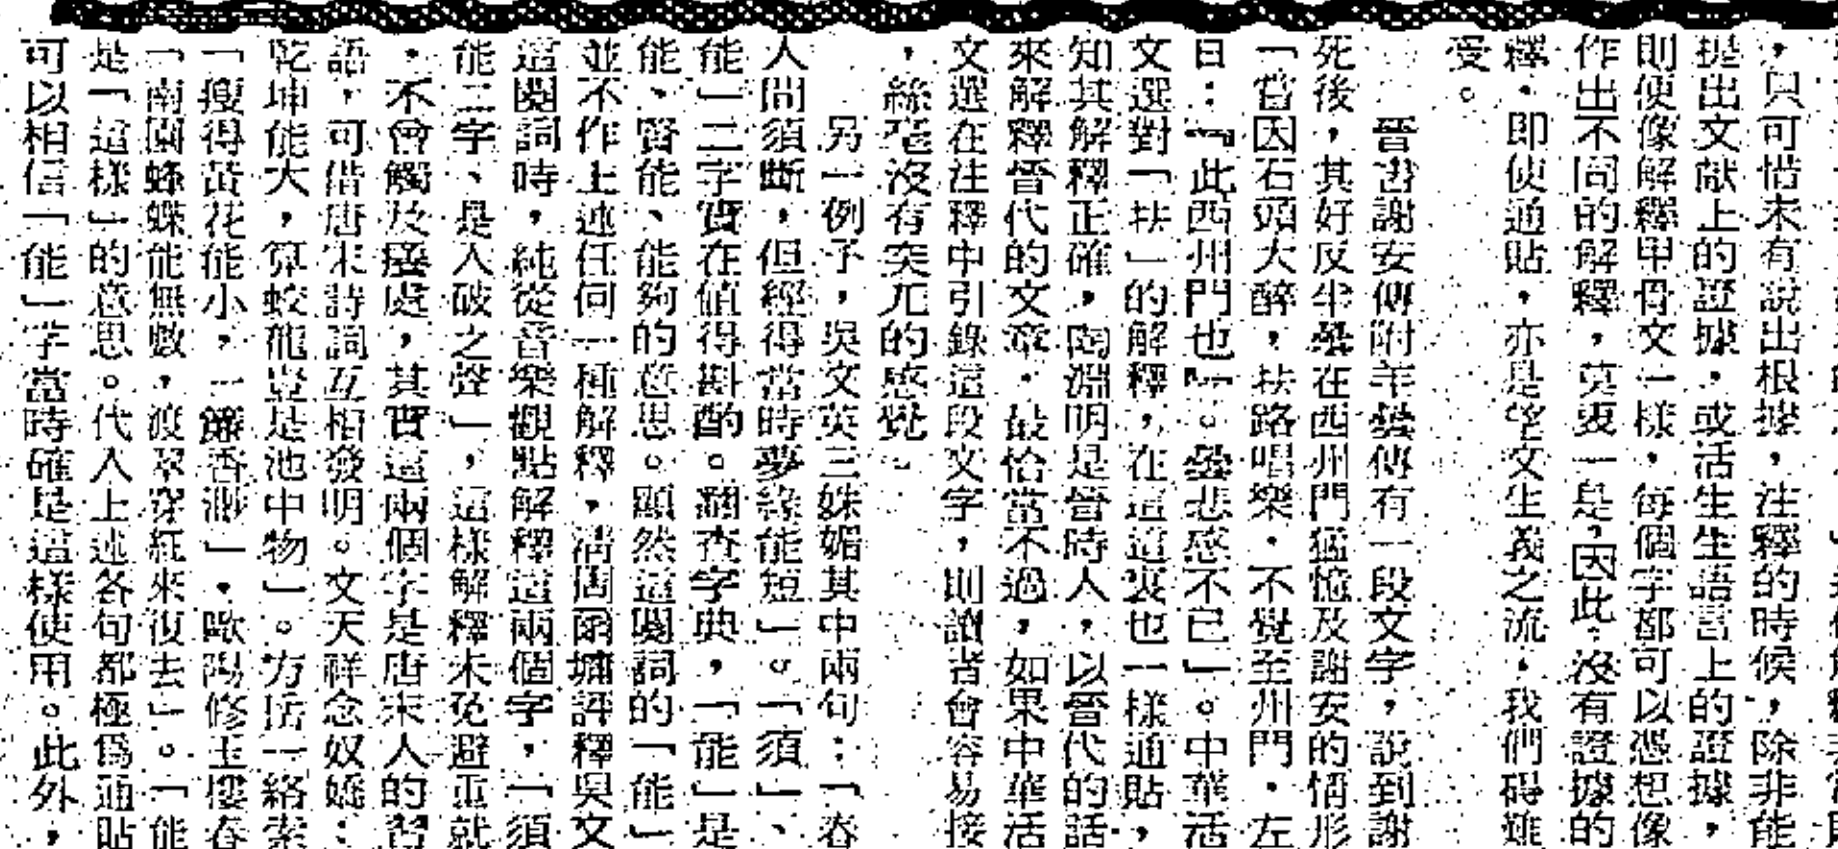 ，只可惜未有說出根據，注釋的時候，除非能
提出文献上的證據，或活生生語言上的證據，
則便像解釋甲骨文一樣，每個字都可以憑想像
作出不同的解釋，莫衷一是，因此，沒有證據的
釋，即使通貼，亦是望文生義之流，我們碍難
受。
晉書謝安傳附羊曇傳有一段文字，說到謝
死後，其好友羊曇在西州門猛憶及謝安的情形
「嘗因石頭大醉，扶路唱樂，不覺至州門，左
曰：『此西州門也』。曇悲感不已」。中華活
文選對「扶」的解釋，在這這裏也一樣通貼，
知其解釋正確，陶淵明是晉時人，以晉代的話
來解釋晉代的文章，最恰當不過，如果中華活
文選在注釋中引錄這段文字，則讀者會容易接
，絲毫沒有突兀的感覺。
另一例子，吳文英三姝媚其中兩句：「春
人間須斷，但經得當時夢緣能短」。「須」、
能」二字實在値得斟酌。翻查字典，「能」是
能、賢能、能夠的意思。顯然這闋詞的「能」
並不作上述任何一種解釋，淸周爾墉評釋吳文
這闋詞時，純從音樂觀點解釋這兩個字，「須
能二字、是入破之聲」，這樣解釋未免避重就
，不會觸及癢處，其實這兩個字是唐宋人的習
語，可借唐宋詩詞互相發明。文天祥念奴嬌：
乾坤能大，算蛟龍豈是池中物」。方岳一絡索
「瘦得黃花能小，一簾香渺」，歐陽修玉樓春
「南園蜂蝶能無數，渡翠穿紅來復去」。「能
是「這樣」的意思。代入上述各句都極爲通貼
可以相信「能」字當時確是這樣使用。此外，